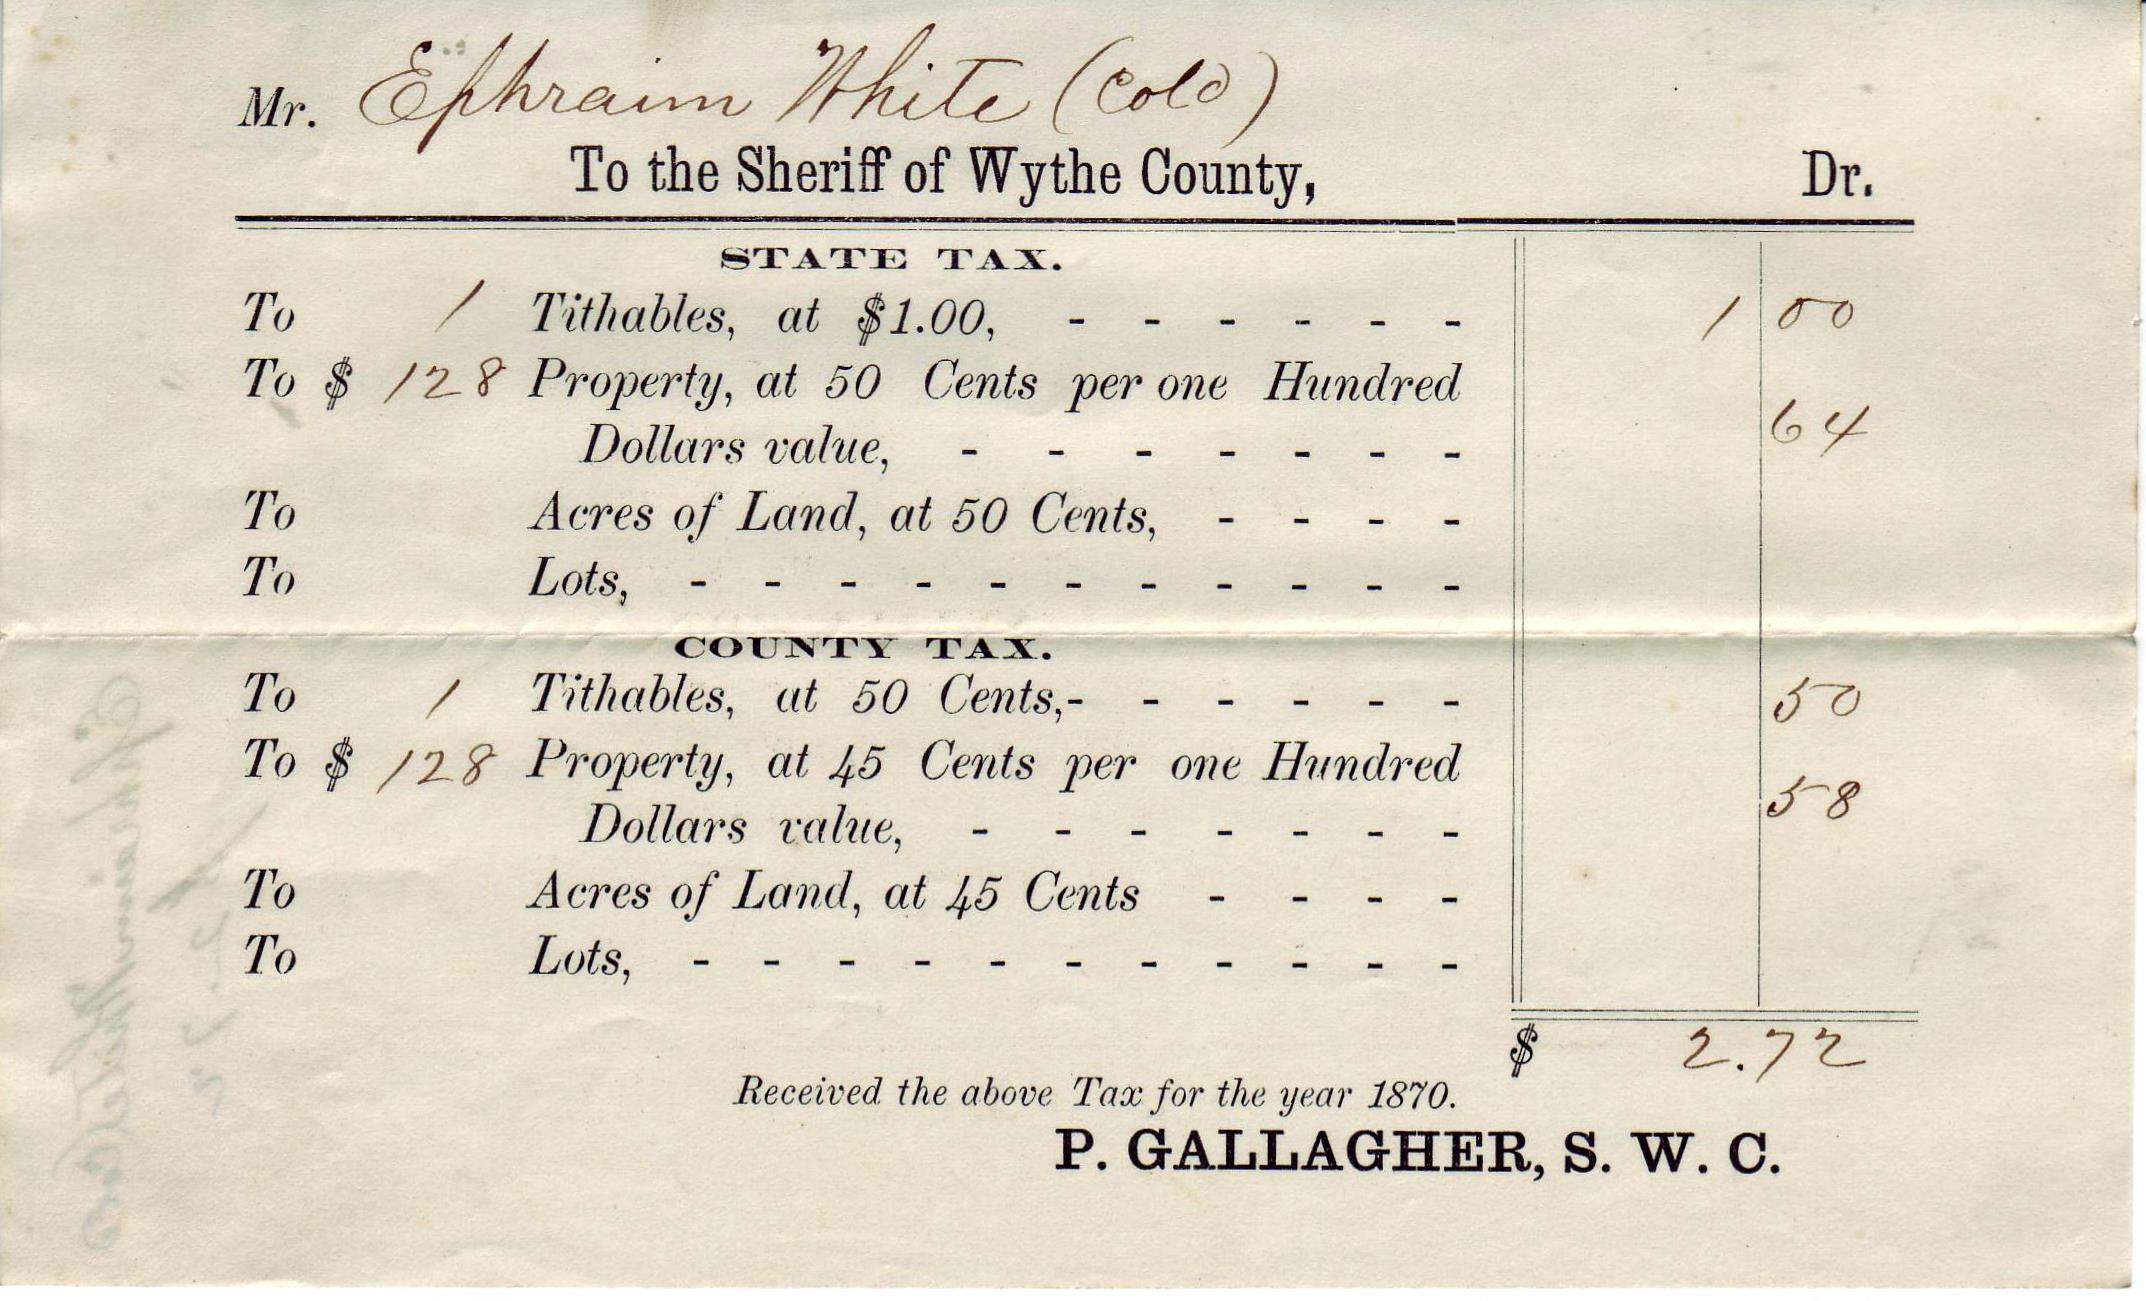 Mr. Ephraim White (Cold)
To the Sheriff of Wythe County, Dr.
STATE TAX.
To 1 Tithables, at $1.00, - - - - - - 1 00
To $ 128 Property, at 50 Cents per one Hundred
Dollars value, - - - - - - - 64
To Acres of Land, at 50 Cents, - - - -
To Lots, - - - - - - - - - - -
COUNTY TAX.
To 1 Tithables, at 50 Cents,- - - - - - 50
To $ 128 Property, at 45 Cents per one Hundred
Dollars value, - - - - - - - 58
To Acres of Land, at 45 Cents - - - -
To Lots, - - - - - - - - - - -
$ 2.72
Received the above Tax for the year 1870.
P. GALLAGHER, S. W. C.